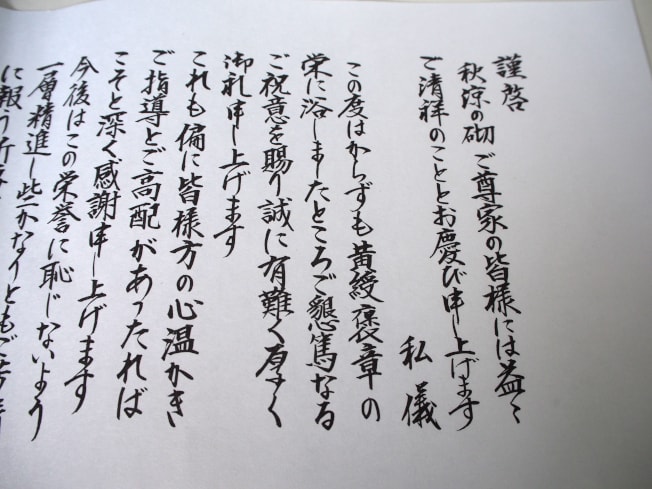 謹啓
秋涼の砌ご尊家の皆様には益々
ご清祥のこととお慶び申し上げます
私儀
この度はからずも黄綬褒章の
栄に浴しましたところご懇篤なる
ご祝意を賜り誠に有難く厚く
御礼申し上げます
これも偏に皆様方の心温かき
ご指導とご高配があったれば
こそと深く感謝申し上げます
今後はこの栄誉に恥じないよう
一層精進し些かなりともご
に報う